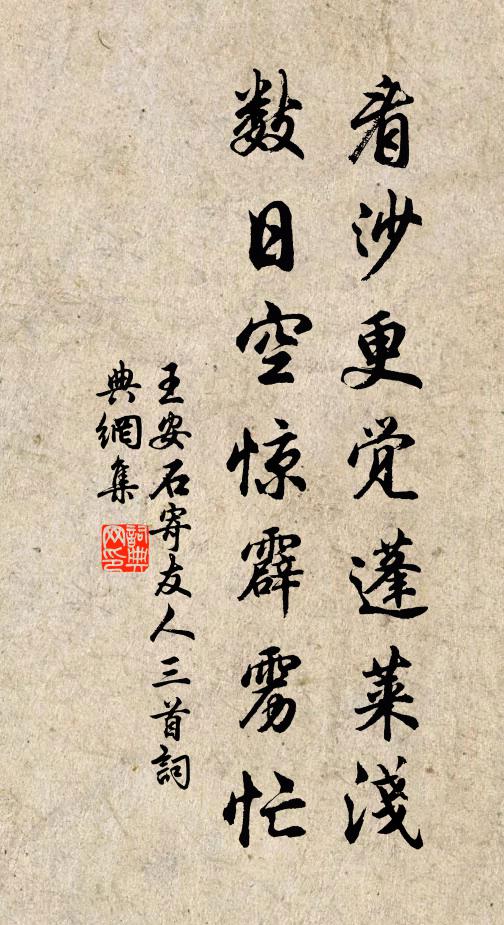 看沙更觉蓬莱淺
数日空惊霹雳忙
王安石寄友人三首詞
典網集
詞典网印